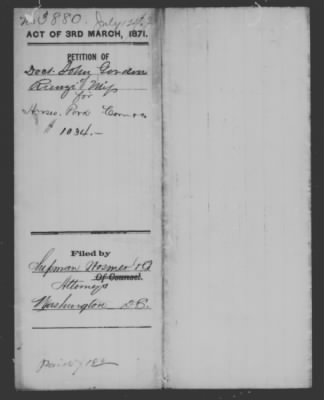 No 3880. July 12
ACT OF 3RD MARCH, 1871.
PETITION OF
Doct. John Gordon
Rienzi Miss
for
Horses. Pork Corn &c
$ 1034.-
Filed by
Lupman Hosmer & Co
Of Counsel.
Attorneys
Washington D.C.